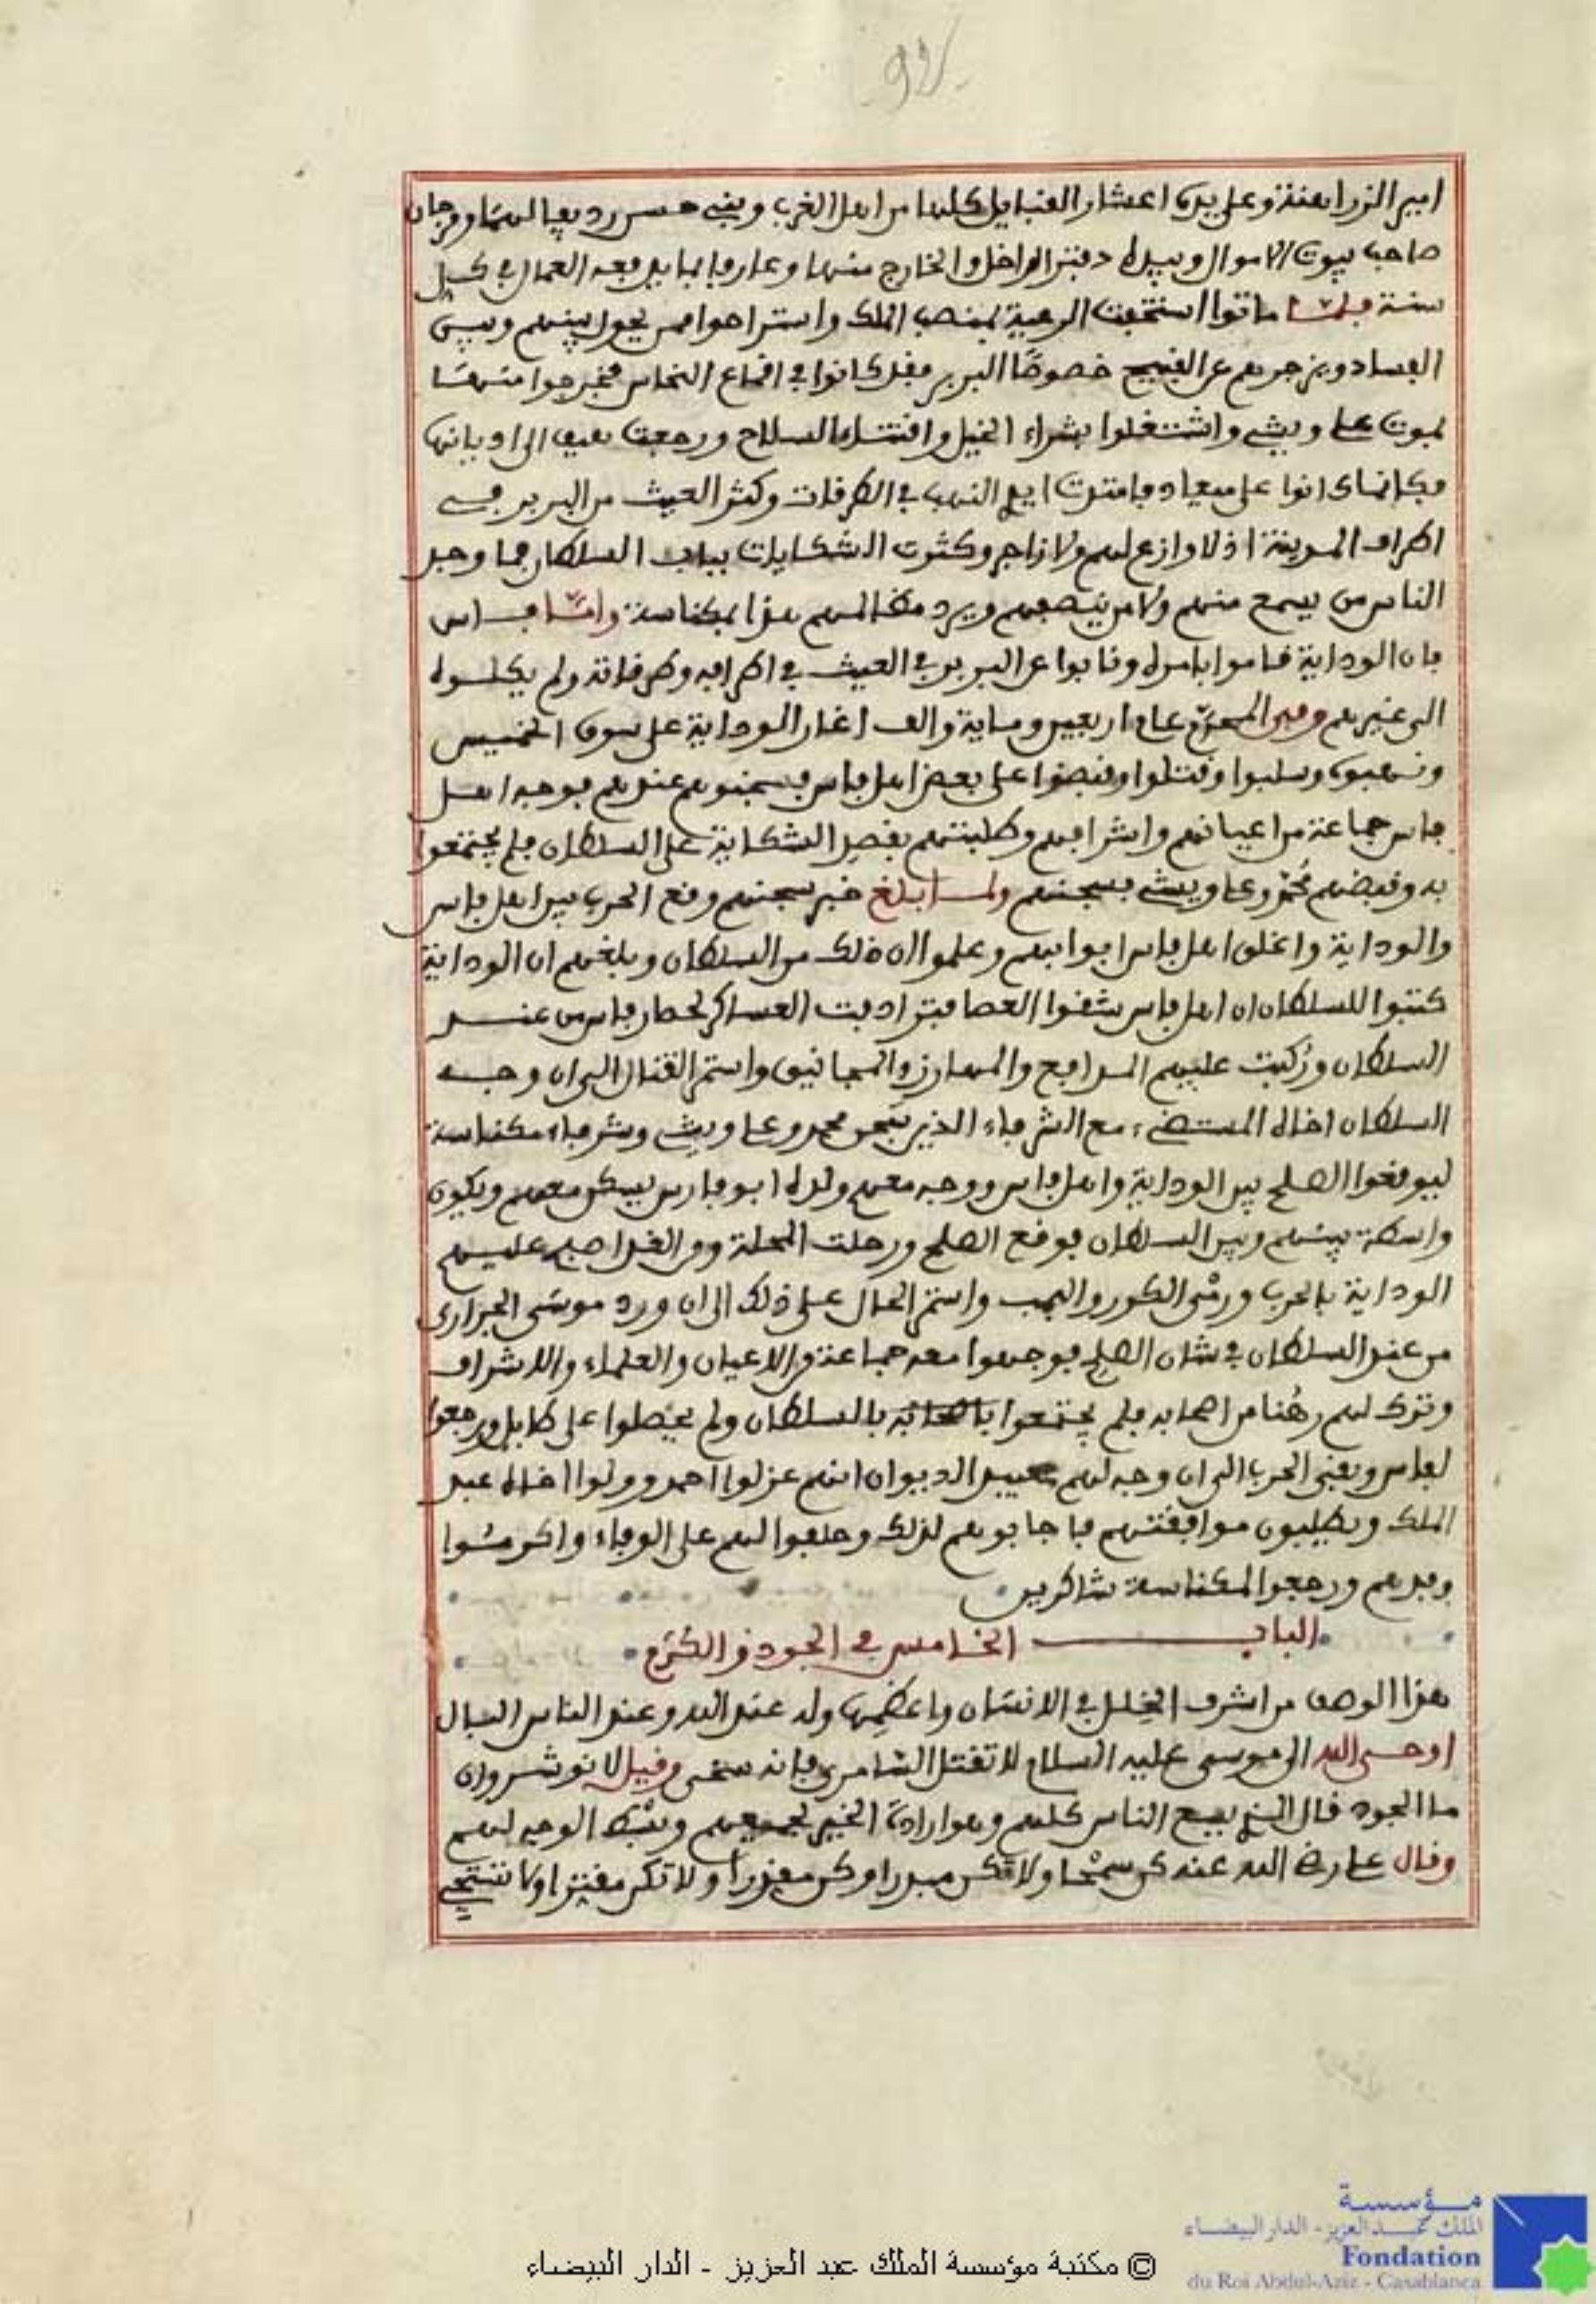 92
امير الزرابعنة وعلى يده اعشار القبايل كلها من اهل الغرب وبني حسن رديفا لهما ومرجان
صاحب بيوت الاموال وبيده دفتر الداخل والخارج منها وعارفا بما يدفعه العمال في كل
سنة فلما ماتوا استخفت الرعية بمنصب الملك واستراحوا ممن يحول بينهم وبين
الفساد ويزجرهم عن القبيح خصوصا البربر فقد كانوا في اقماع النحاس فخرجوا منها
بموت علي ويشي واشتغلوا بشراء الخيل واقتناء السلاح ورجعت هيف الى اديانها
فكانما كانوا على ميعاد فامتدت ايد النهب في الطرقات وكثر العيث من البربر في
اطراف المدينة اذ لا وازع لهم ولا زاجر وكثرت الشكايات بباب السلطان فما وجد
الناس من يسمع منهم ولا من ينصفهم ويرد مظالمهم هذا بمكناسة واما فاس
فان الوداية قاموا بامره ونابوا عن البربر في العيث في اطرافه وطرقاته ولم يكلوه
الى غيرهم وفي المحرم عام اربعين وماية والف اغار الوداية على سوق الخميس
ونهبوه وسلبوا وقتلوا وقبضوا على بعض اهل فاس فسجنوهم عندهم فوجه اهل
فاس جماعة من اعيانهم واشرافهم وطلبتهم بقصد الشكاية على السلطان فلم يجتمعوا
به وقبضهم محمد وعلي ويشي بسجنهم ولما بلغ خبر سجنهم وقع الحرب بين اهل فاس
والوداية واغلق اهل فاس ابوابهم وعلموا ان ذلك من السلطان وبلغهم ان الوداية
كتبوا للسلطان ان اهل فاس شقوا العصا فترادفت العساكر لحصار فاس من عند
السلطان وركبت عليهم المدافع والمهارز والمجانيق واستمر القتال الى ان وجه
السلطان اخاه المستضيء مع الشرفاء الذين سجن محمد وعلي ويشي وشرفاء مكناسة
ليوقعوا الصلح بين الوداية واهل فاس ووجه معهم ولده ابو فارس يسكن معهم ويكون
واسطة بينهم وبين السلطان فوقع الصلح ورحلت المحلة ومن الغد اصبح عليهم
الوداية بالحرب ورمى الكور والبمب واستمر الحال على ذلك الى ان ورد موسى الجراري
من عند السلطان في شان الصلح فوجهوا معه جماعة من الاعيان والعلماء والاشراف
وترك لهم رهنا من اصحابه فلم يجتمعوا بالسلطان ولم يحصلوا على طايل ورجعوا
لفاس وبقي الحرب الى ان وجه لهم عبيد الديوان انهم عزلوا احمد وولوا اخاه عبد
الملك ويطلبون موافقتهم فاجابوهم لذلك وحلفوا لهم على الوفاء واكرموا
وفدهم ورجعوا لمكناسة شاكرين
الباب الخامس في الجود والكرم
هذا الوصف من اشرف الخلل في الانسان واعظمها وله عند الله وعند الناس البال
اوحى الله الى موسى عليه السلام لا تقتل السامري فانه سخي وقيل لانوشروان
ما الجود قال الذي يسع الناس كلهم وهو ارادة الخير لجميعهم وبسط الوجه لهم
وقال علي رضي الله عنه كن سمحا ولا تكن مبذرا وكن مقدرا ولا تكن مقترا ولا تستحي
مؤسسة
الملك عبد العزيز - الدار البيضاء
Fondation
du Roi Abdul-Aziz - Casablanca
© مكتبة مؤسسة الملك عبد العزيز - الدار البيضاء